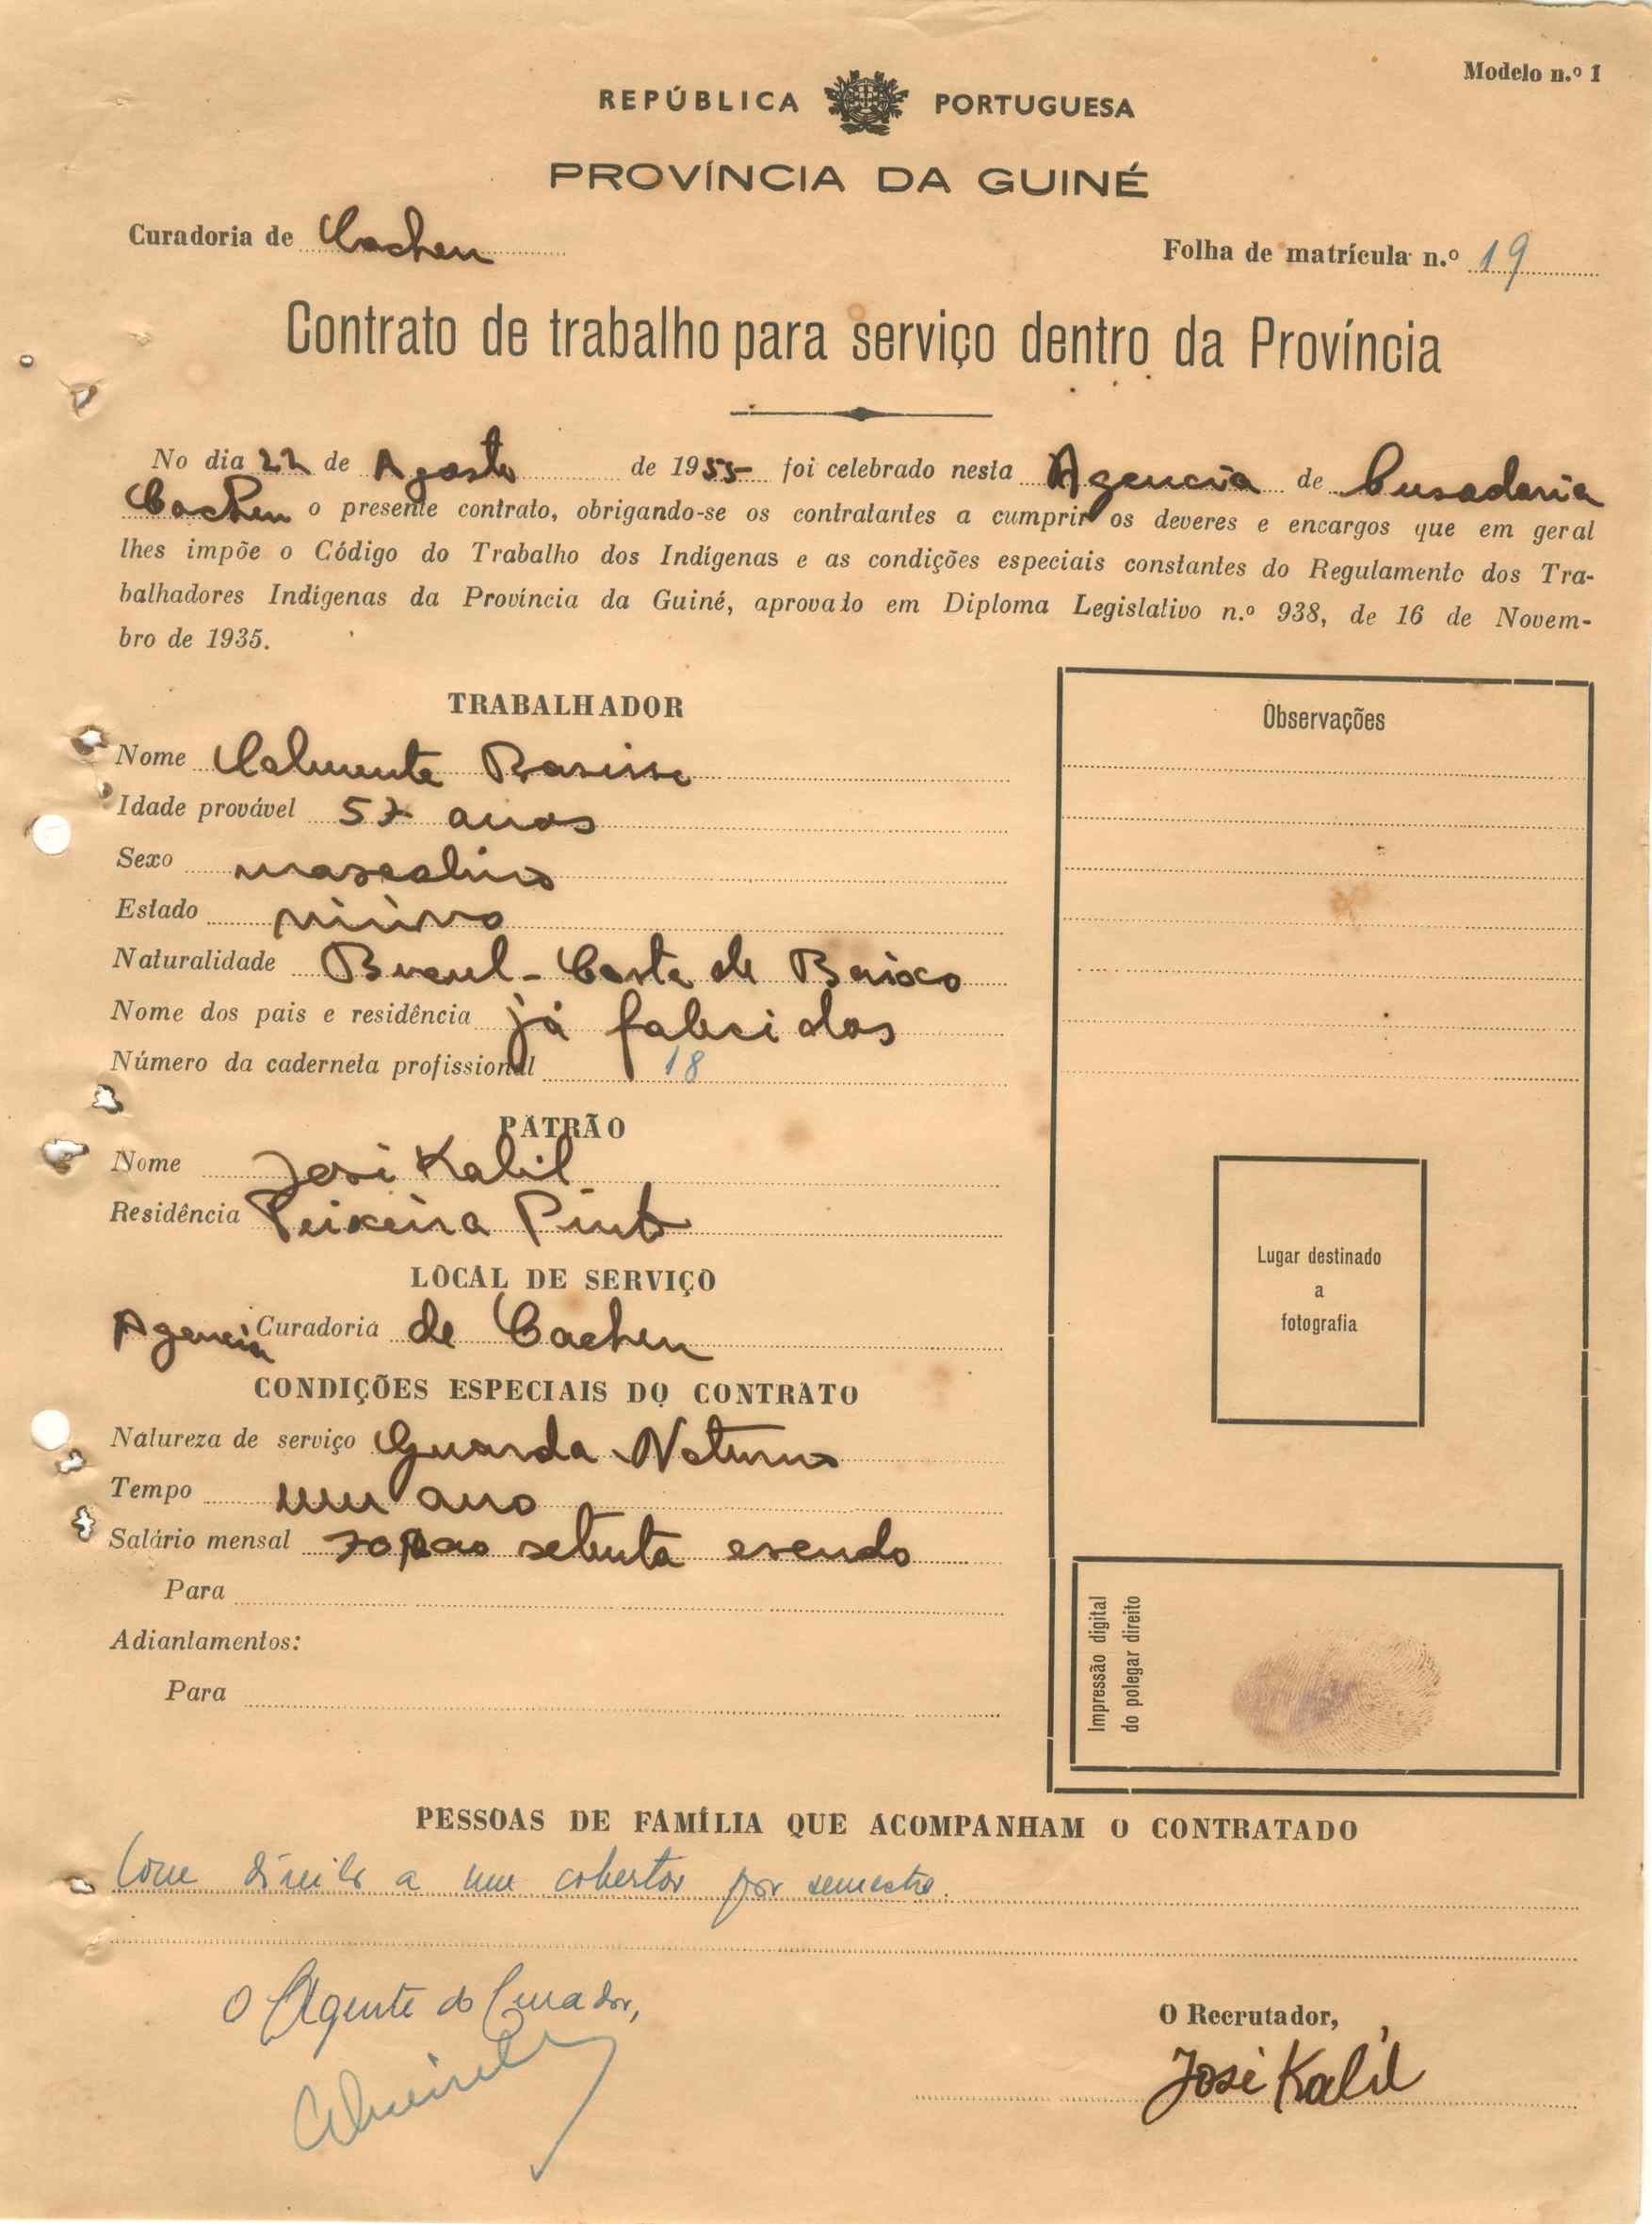 Modelo n.º 1
REPÚBLICA PORTUGUESA
PROVÍNCIA DA GUINÉ
Curadoria de Cacheu
Folha de matrícula n.º 19
Contrato de trabalho para serviço dentro da Província
No dia 22 de Agosto de 1955 foi celebrado nesta Agencia de Curadoria
Cacheu o presente contrato, obrigando-se os contratantes a cumprir os deveres e encargos que em geral
lhes impõe o Código do Trabalho dos Indígenas e as condições especiais constantes do Regulamento dos Tra-
balhadores Indígenas da Província da Guiné, aprovado em Diploma Legislativo n.º 938, de 16 de Novem-
bro de 1935.
TRABALHADOR
Observações
Nome
Idade provável 57 anos
Sexo masculino
Estado
Naturalidade Bucul - Costa de Baixo
Nome dos pais e residência já falecidos
Número da caderneta profissional 18
PATRÃO
Nome José Kalil
Residência Teixeira Pinto
LOCAL DE SERVIÇO
Agencia Curadoria de Cacheu
CONDIÇÕES ESPECIAIS DO CONTRATO
Natureza de serviço Guarda Noturno
Tempo um ano
Salário mensal 70$00 setenta escudo
Para
Adiantamentos:
Para
Lugar destinado
a
fotografia
Impressão digital
do polegar direito
PESSOAS DE FAMÍLIA QUE ACOMPANHAM O CONTRATADO
Com direito a um cobertor por semestre.
O Agente do Curador,
O Recrutador,
José Kalil